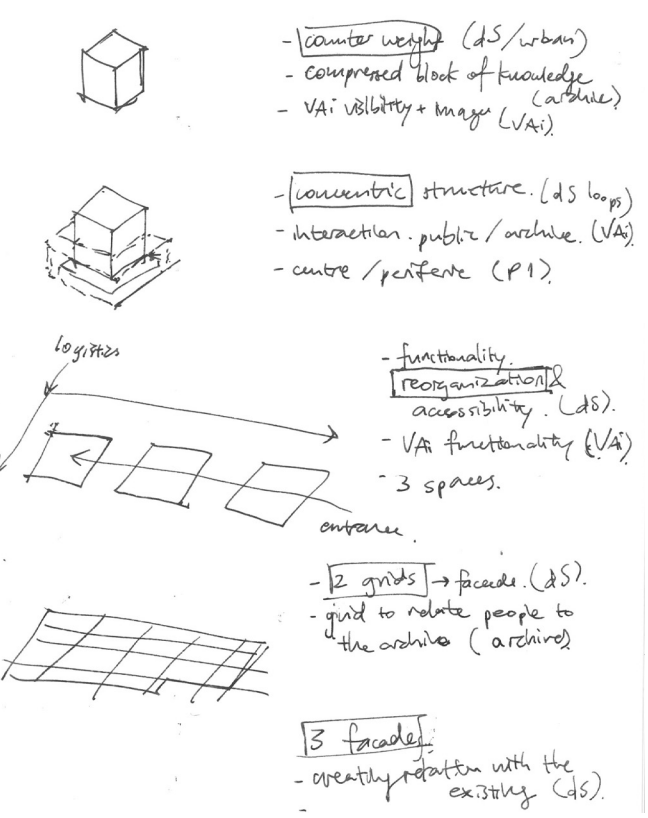 - counter weight (dS/urban)
- compressed block of knowledge
(archive)
- VAi visibility + image (VAi)
- concentric structure. (dS loops)
- interaction. public / archive. (VAi)
- centre / periferie (P1).
logistics
- functionality.
reorganization &
accessibility. (dS).
- VAi functionality (VAi)
- 3 spaces.
entrance.
- 2 grids → facade. (dS).
- grid to relate people to
the archive (archive)
3 facades
- creating relation with the
existing (dS).
-